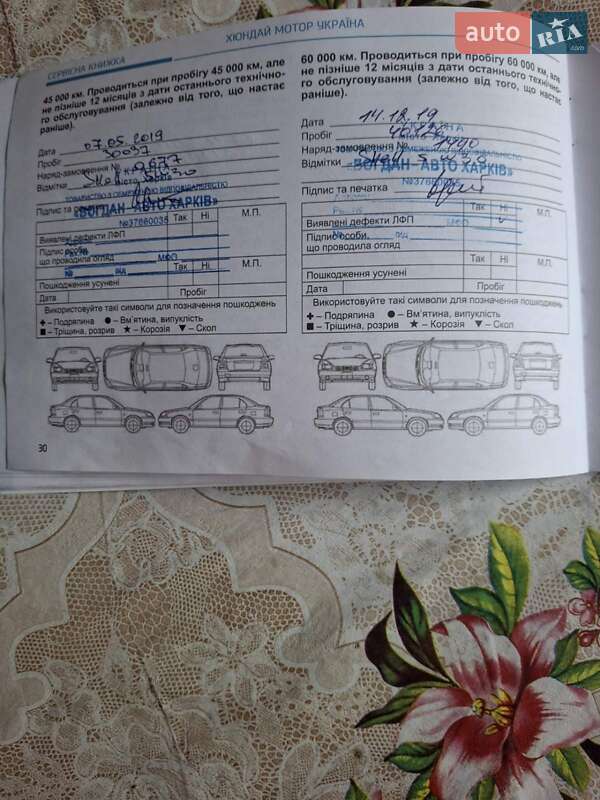 auto RIA .com
СЕРВІСНА КНИЖКА
ХЮНДАЙ МОТОР УКРАЇНА
45 000 км. Проводиться при пробігу 45 000 км, але
не пізніше 12 місяців з дати останнього технічно-
го обслуговування (залежно від того, що настає
раніше).
Дата 07.05.2019
Пробіг 30037
Наряд-замовлення №
Відмітки
ТОВАРИСТВО З ОБМЕЖЕНОЮ ВІДПОВІДАЛЬНІСТЮ
Підпис та
«БОГДАН -АВТО ХАРКІВ»
№37660035
Так Ні М.П.
Виявлені дефекти ЛФП
Підпис особи,
що проводила огляд
Так Ні М.П.
Пошкодження усунені
Дата Пробіг
Використовуйте такі символи для позначення пошкоджень
+ – Подряпина ● – Вм'ятина, випуклість
■ – Тріщина, розрив ★ – Корозія ▼ – Скол
30
60 000 км. Проводиться при пробігу 60 000 км, але
не пізніше 12 місяців з дати останнього технічно-
го обслуговування (залежно від того, що настає
раніше).
Дата 14.12.19
Пробіг
Наряд-замовлення №
Відмітки
«БОГДАН -АВТО ХАРКІВ»
Підпис та печатка
Так Ні М.П.
Виявлені дефекти ЛФП
Підпис особи,
що проводила огляд
Так Ні М.П.
Пошкодження усунені
Дата Пробіг
Використовуйте такі символи для позначення пошкоджень
+ – Подряпина ● – Вм'ятина, випуклість
■ – Тріщина, розрив ★ – Корозія ▼ – Скол